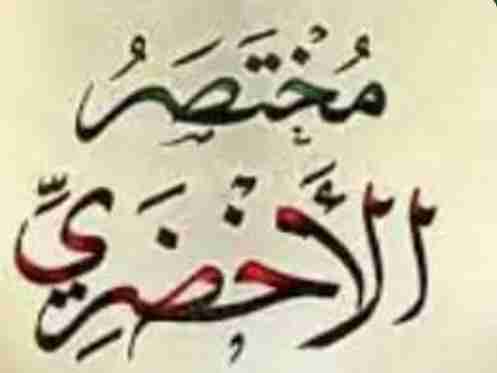 مُخْتَصَرُ
الأَخْضَرِيِّ